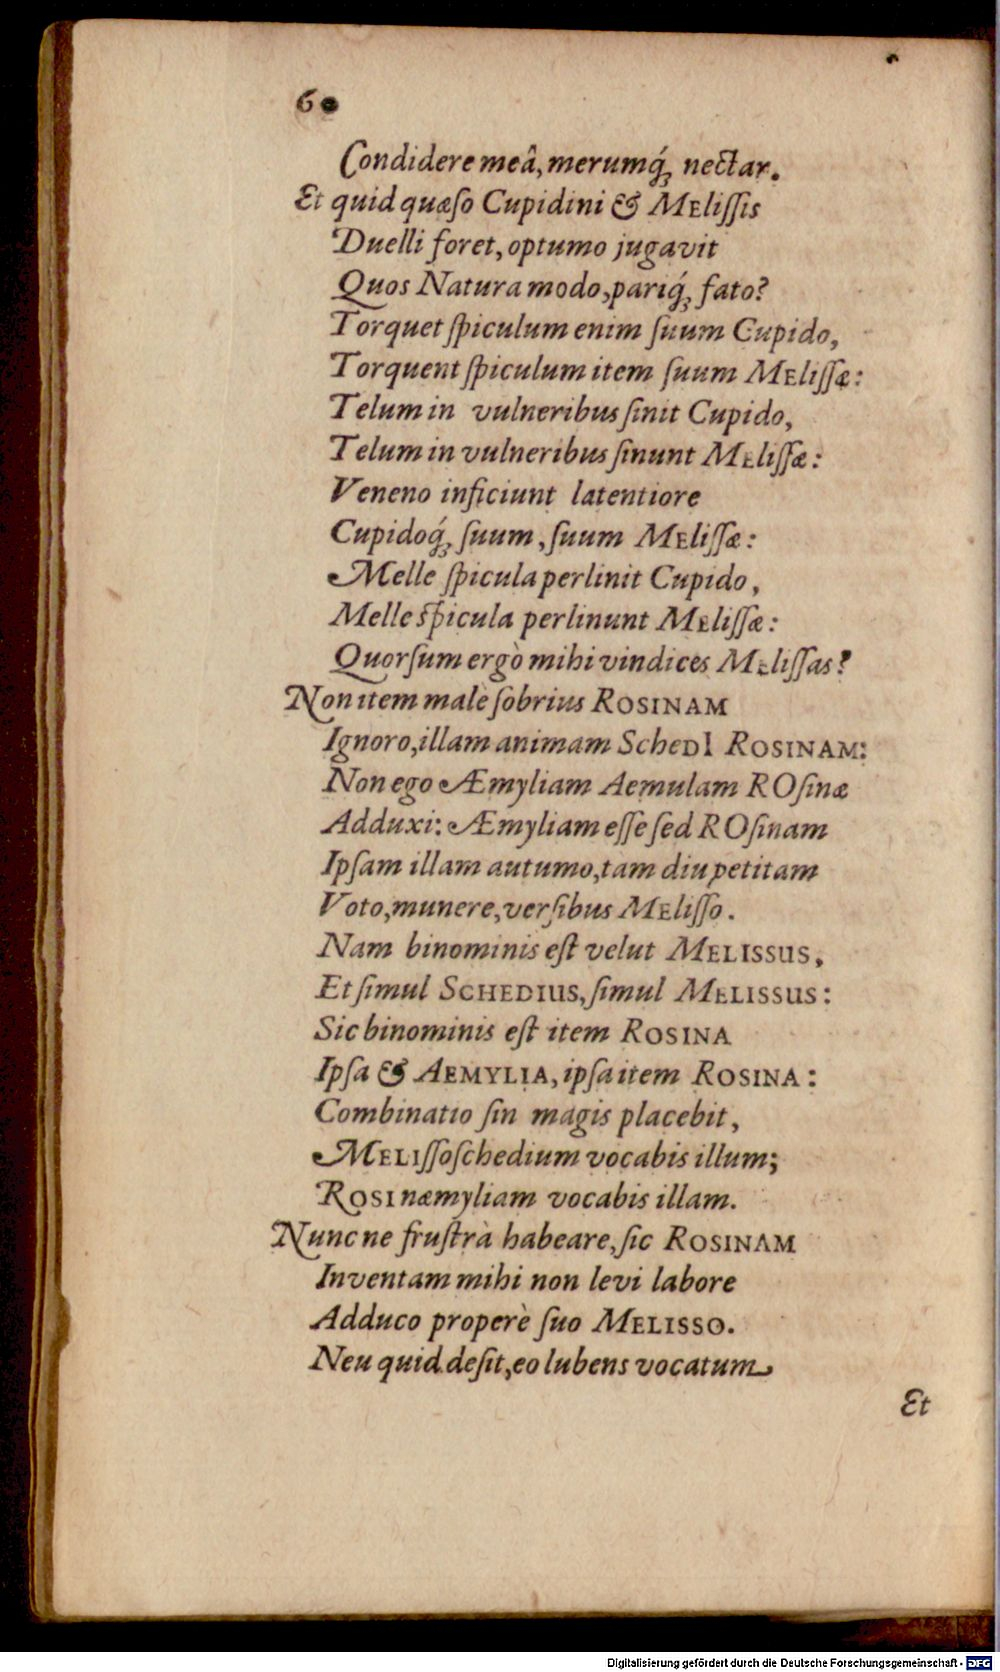 60
Condidere meâ, merumq́ꝫ nectar.
Et quid quæſo Cupidini & MEliſſis
Duelli foret, optumo jugavit
Quos Natura modo, pariq́ꝫ fato?
Torquet ſpiculum enim ſuum Cupido,
Torquent ſpiculum item ſuum MEliſſæ:
Telum in vulneribus ſinit Cupido,
Telum in vulneribus ſinunt MEliſſæ:
Veneno inficiunt latentiore
Cupidoq́ꝫ ſuum, ſuum MEliſſæ:
Melle ſpicula perlinit Cupido,
Melle ſpicula perlinunt MEliſſæ:
Quorſum ergò mihi vindices MEliſſas?
Non item malè ſobrius ROSINAM
Ignoro, illam animam ScheDI ROSINAM:
Non ego Æmyliam Aemulam ROſinæ
Adduxi: Æmyliam eſſe ſed ROſinam
Ipſam illam autumo, tam diu petitam
Voto, munere, verſibus MEliſſo.
Nam binominis eſt velut MELISSUS,
Et ſimul SCHEDIUS, ſimul MELISSUS:
Sic binominis eſt item ROSINA
Ipſa & AEMYLIA, ipſa item ROSINA:
Combinatio ſin magis placebit,
MELIſſoſchedium vocabis illum;
ROSInæmyliam vocabis illam.
Nunc ne fruſtrà habeare, ſic ROSINAM
Inventam mihi non levi labore
Adduco properè ſuo MELISSO.
Neu quid deſit, eo lubens vocatum
Et
Digitalisierung gefördert durch die Deutsche Forschungsgemeinschaft - DFG